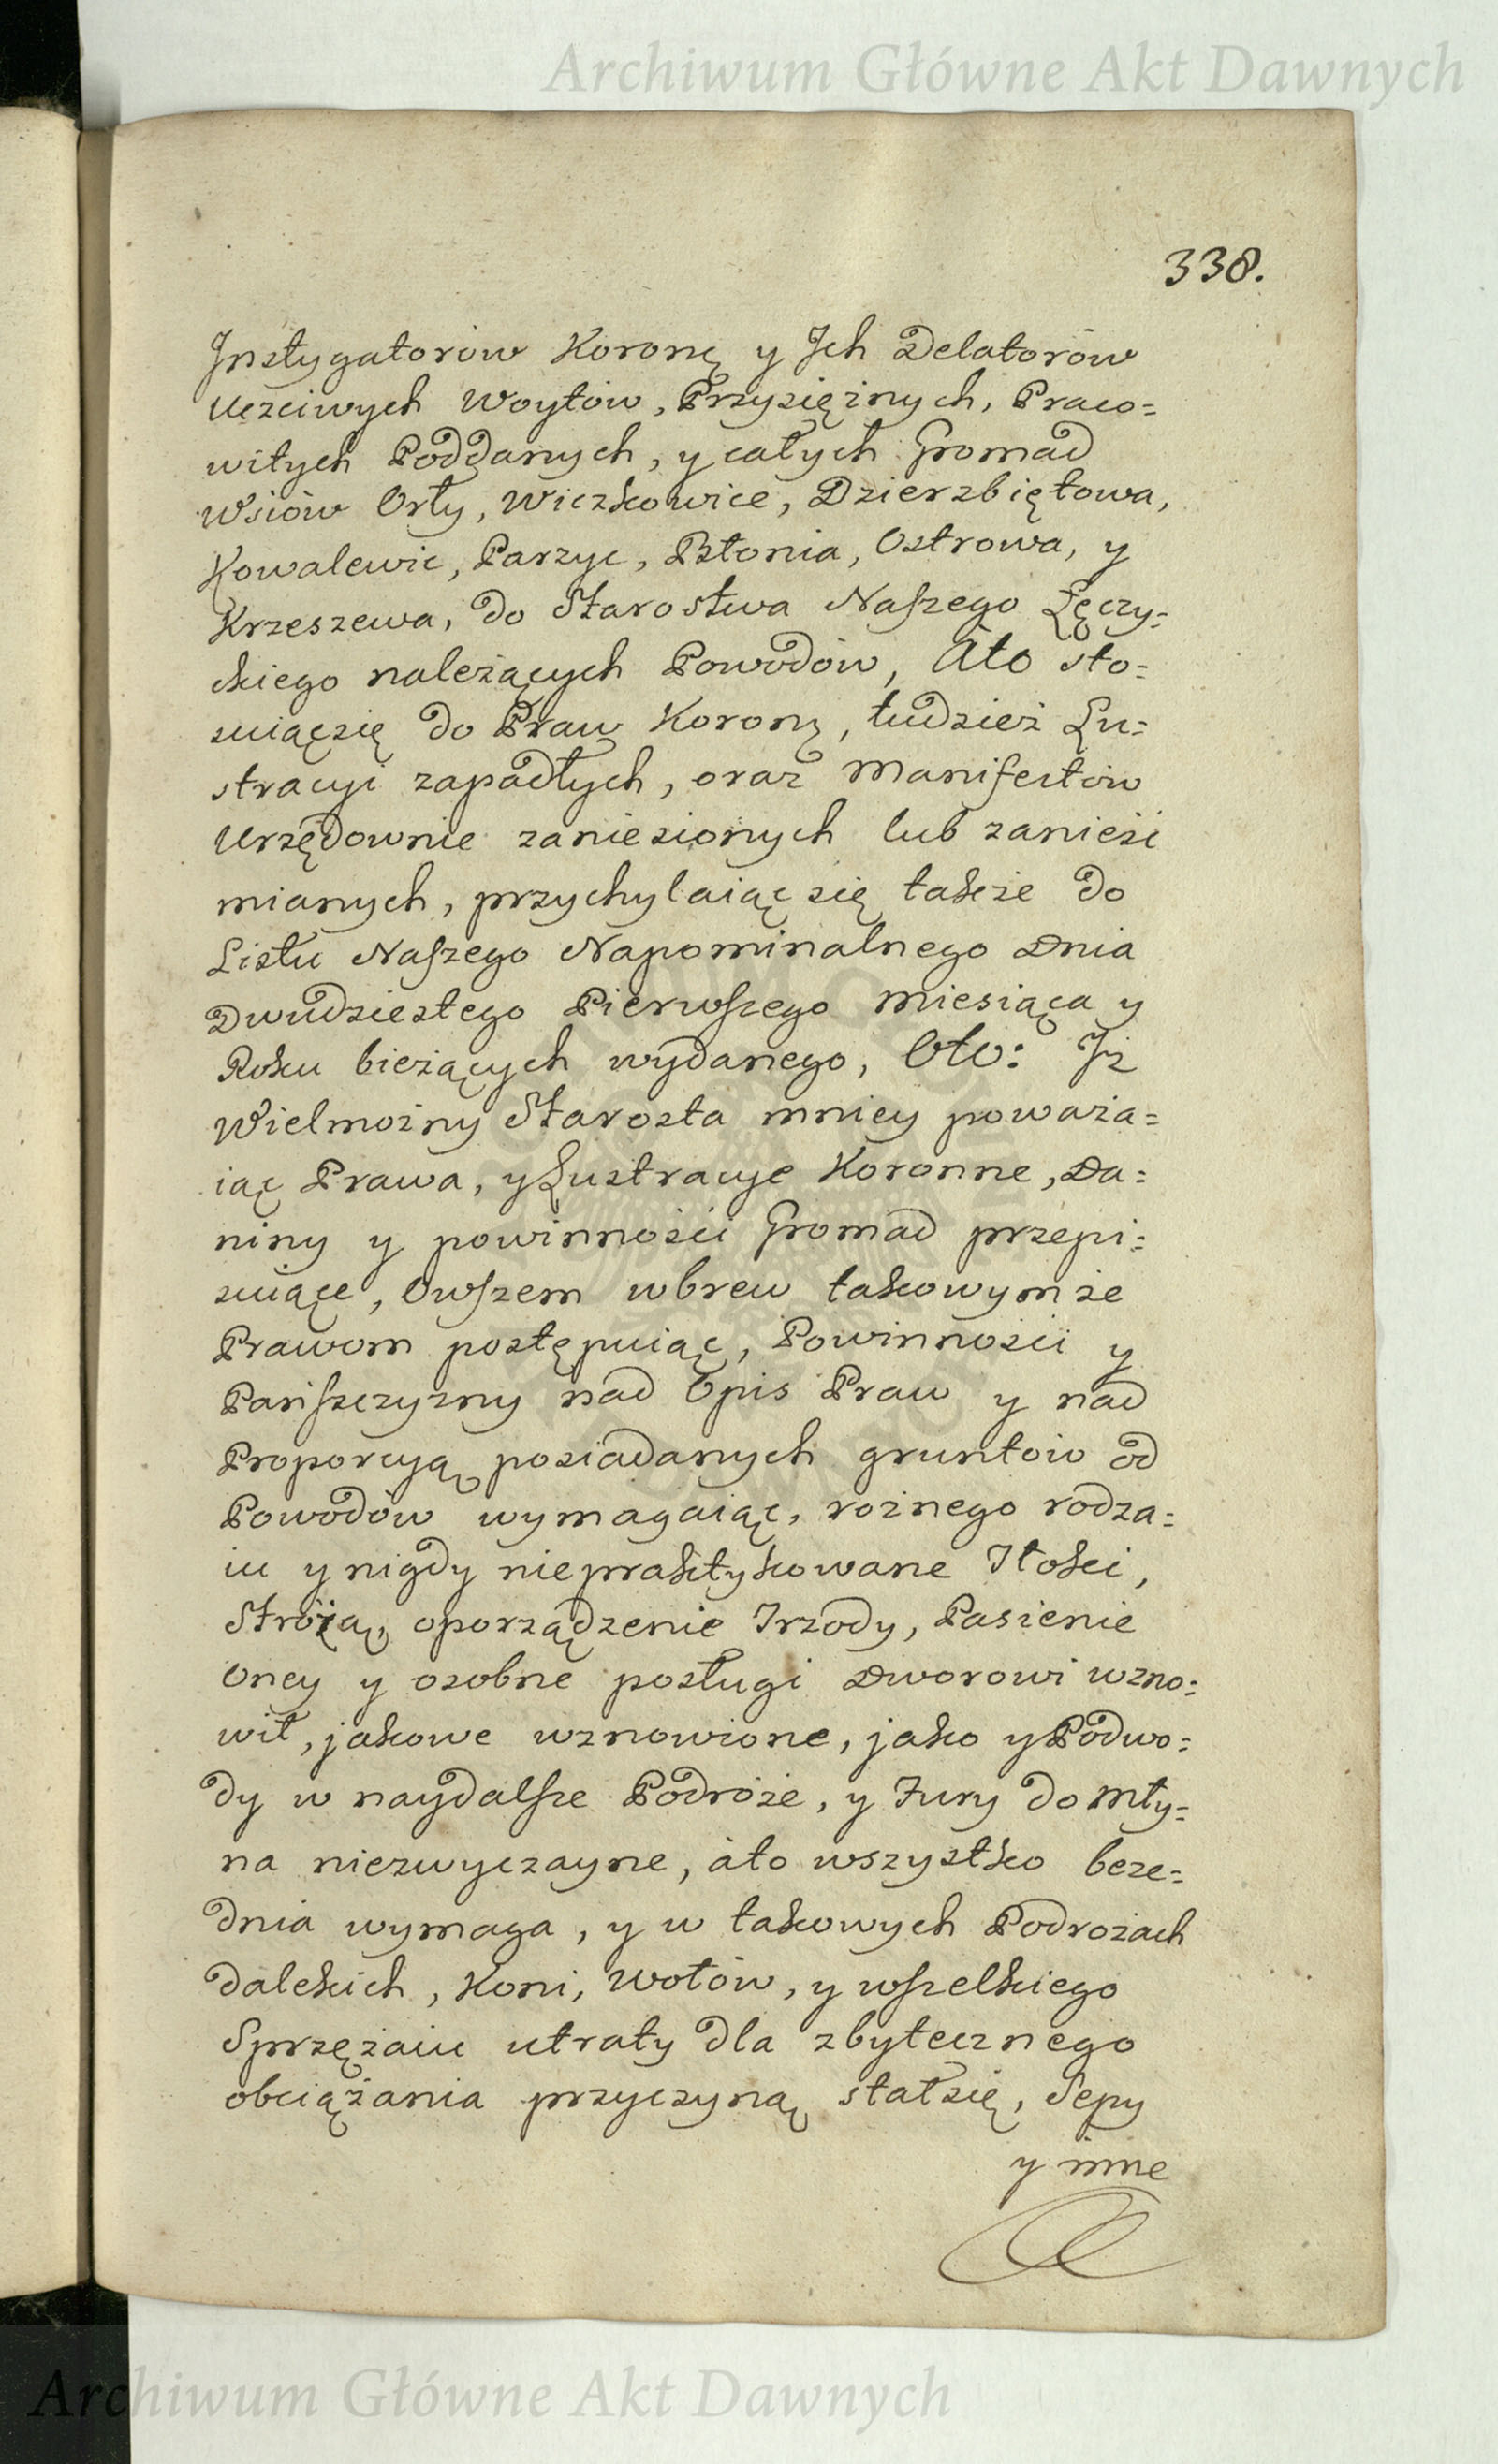 Archiwum Główne Akt Dawnych
338.
Jnstygatorow Koronę y Jch Delatorów
Uczciwych Woytow, Przysięznych, Praco=
witych Poddanych, y całych Gromad
Wsiów Orły, Wiczkowice, Dzierzbiętowa,
Kowalewic, Parzyc, Błonia, Ostrowa, y
Krzeszewa, do Starostwa Naszego Łęczy=
ckiego należących Powodów, Ato sto=
suiącsię do Praw Koronę, tudzież Lu=
stracyi zapadłych, oraz Manifestow
Urzędownie zaniesionych lub zanieść
mianych, przychylaiąc się także do
Listu Naszego Napominalnego Dnia
Dwudziestego Pierwszego Miesiąca y
Roku bieżących wydanego, Oto: Jż
Wielmożny Starosta mniey poważa=
iąc Prawa, y Lustracye Koronne, Da=
niny y powinności Gromad przepi=
suiące, Owszem wbrew takowymże
Prawom postępuiąc, Powinności y
Pańszczyzny nad Opis Praw y nad
Proporcyą posiadanych gruntow od
Powodów wymagaiąc, rożnego rodza=
iu y nigdy niepraktykowane Tłoki,
Stróżą, oporządzenie Trzody, Pasienie
Oney y osobne posługi Dworowi wzno=
wił, jakowe wznowione, jako y Podwo=
dy w naydalsze Podróże, y Fury do Mły=
na niezwyczayne, ato wszystko beze=
dnia wymaga, y w takowych Podrożach
dalekich, Koni, Wołów, y wszelkiego
Sprzężaiu utraty dla zbytecznego
obciążania przyczyną stałsię, Sepy
y inne
Archiwum Główne Akt Dawnych